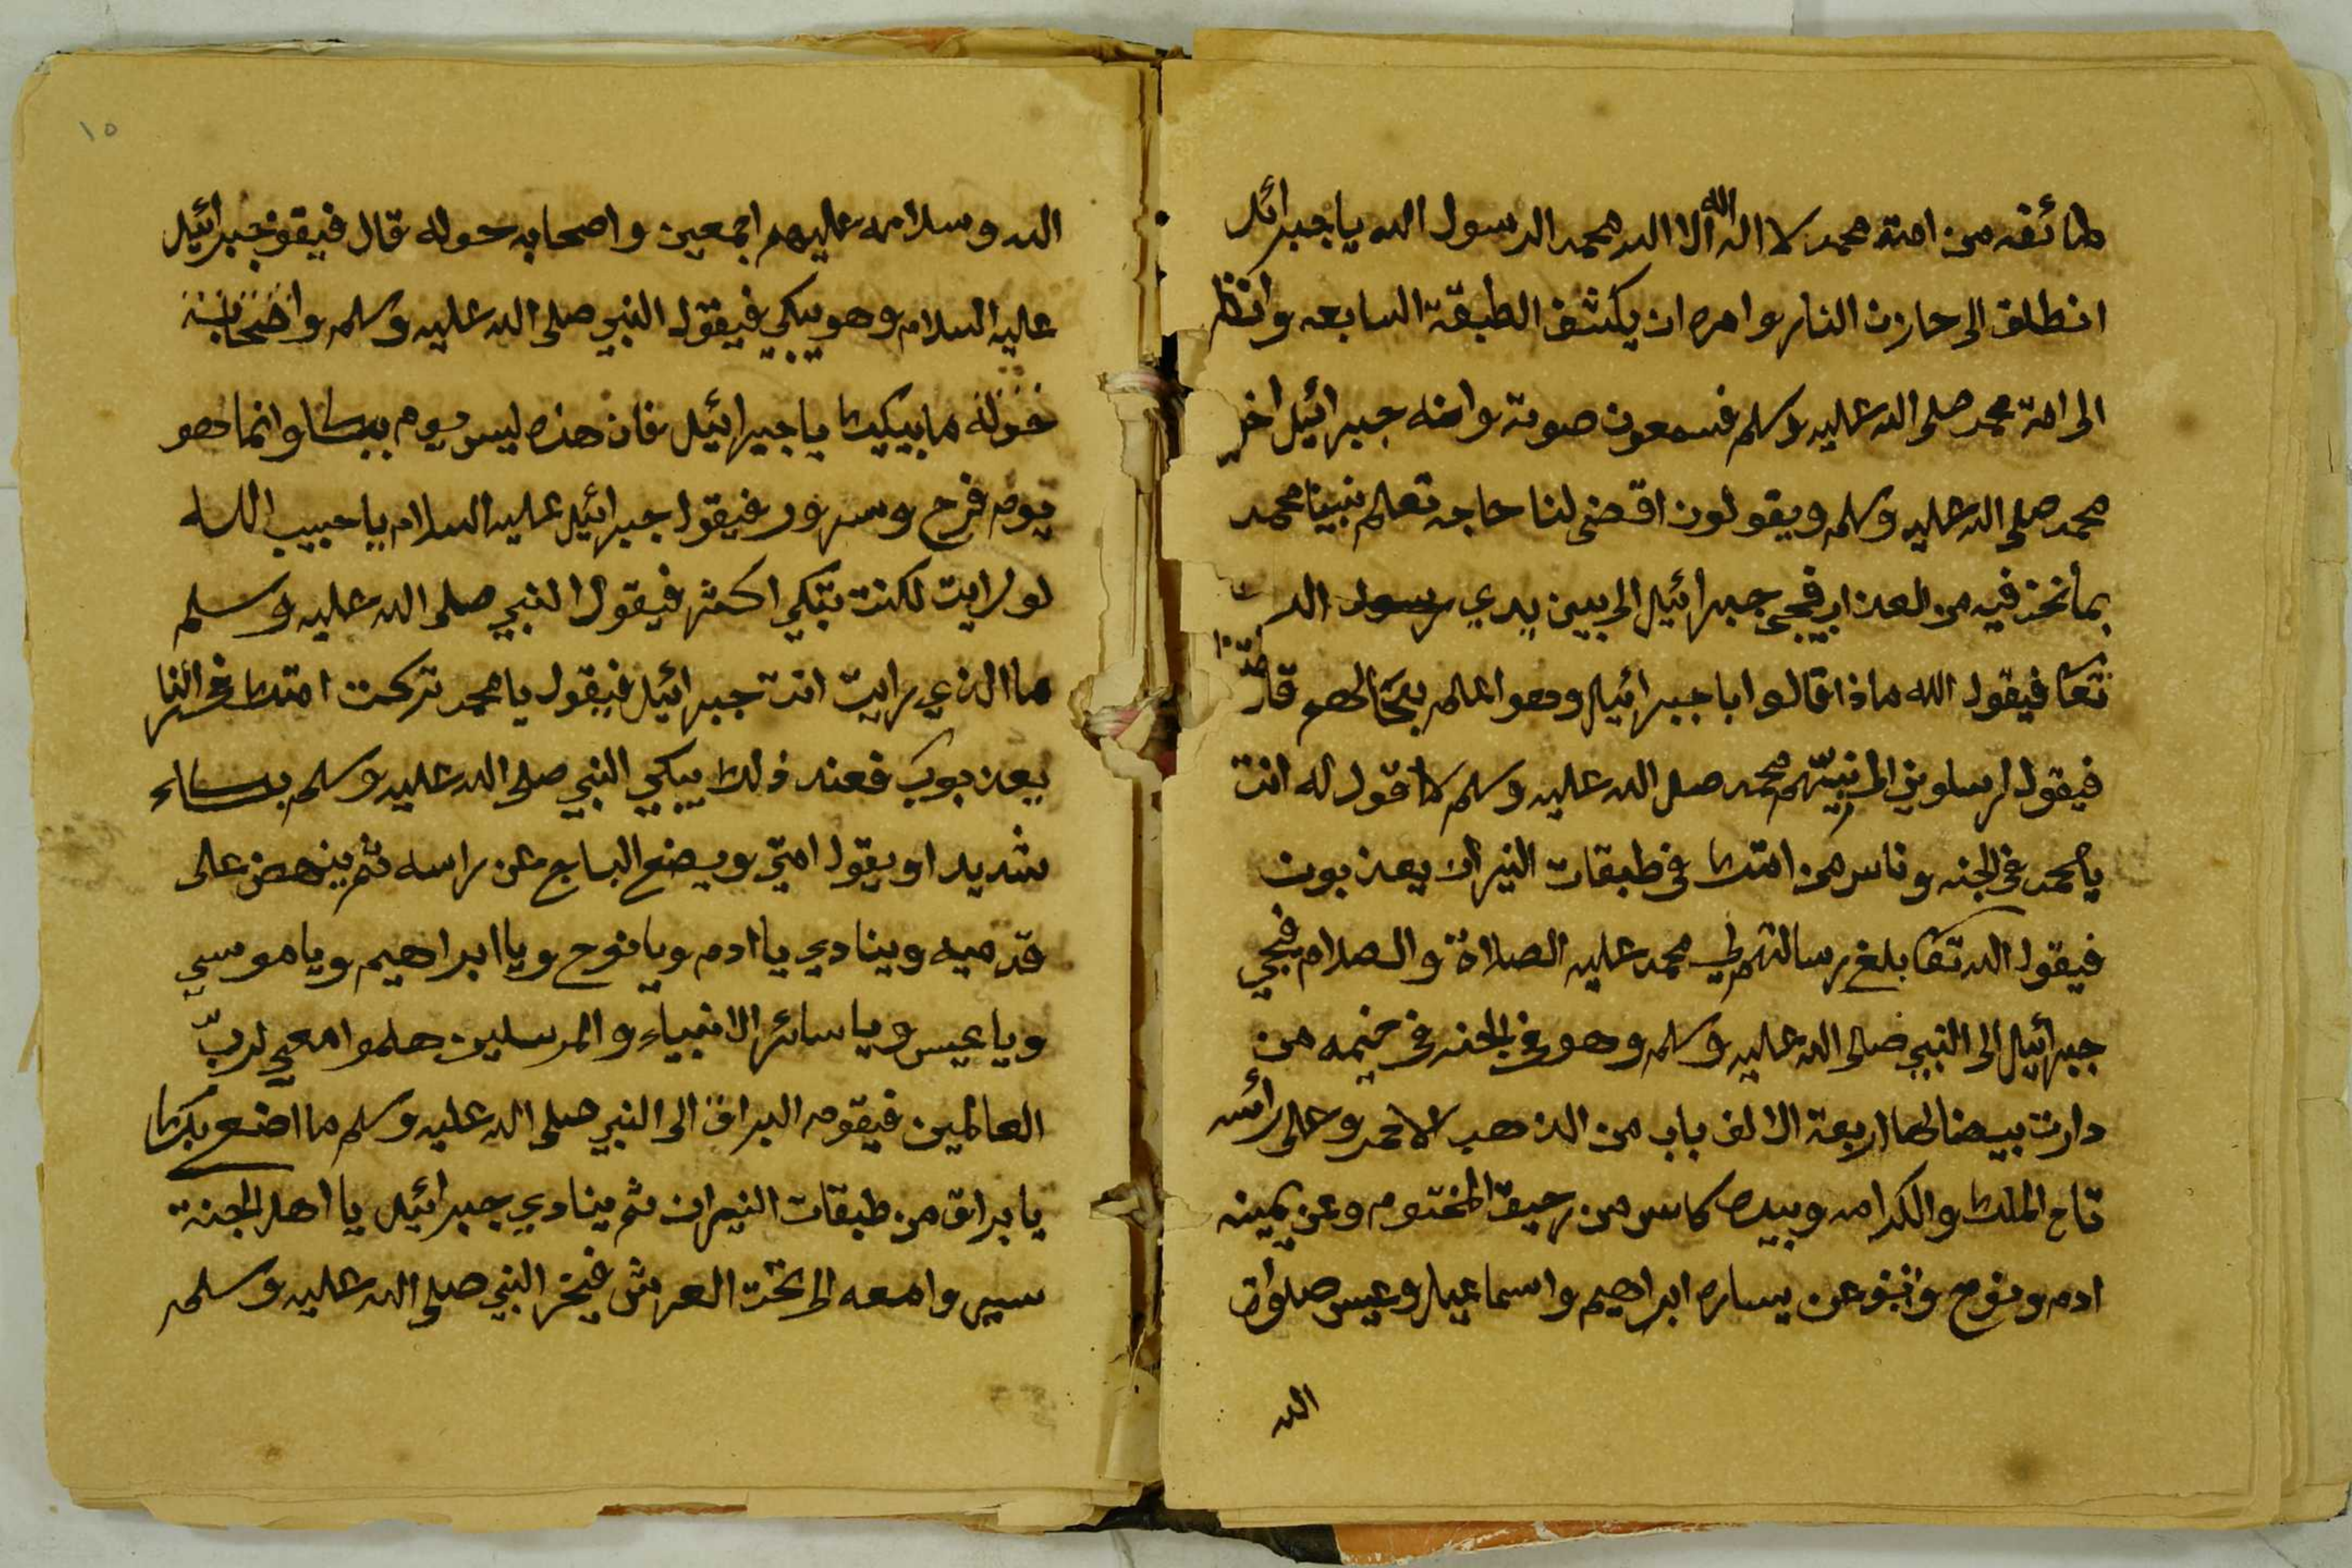 طائفه من امته محمد لا اله الا الله محمد الرسول الله يا جبرائل
انطلق الى حازن النار وامره ان يكشف الطبقة السابعه وانظر
الى امة محمد صلى الله عليه وسلم فسمعون صوته وانه جبرائيل اخي
محمد صلى الله عليه وسلم ويقولون اقضى لنا حاجه تعلم نبينا محمد
بما نحن فيه من العذاب فيجي جبرائيل الى بين يدي رسول الله
تعا فيقول الله ماذا قالوا يا جبرائيل وهو اعلم بحالهم
فيقول ارسلوني الى نبيهم محمد صلى الله عليه وسلم لاقول له انت
يا محمد في الجنه وناس من امتك في طبقات النيران يعذبون
فيقول الله تعا بلغ رسالتهم الي محمد عليه الصلاة والصلام فيجي
جبرائيل الى النبي صلى الله عليه وسلم وهو في الجنه في خيمه من
دارت بيضا لها اربعة الالف باب من الذهب الاحمر وعلى رأسه
تاج الملك والكرامه وبيده كاس من رحيق المختوم وعن يمينه
ادم ونوح وعن يساره ابراهيم واسماعيل وعيس صلوات
الله
١٥
الله وسلامه عليهم اجمعين واصحابه حوله قال فيقو جبرائيل
عليه السلام وهو يبكي فيقول النبي صلى الله عليه وسلم واصحابه
حوله ما يبكيك يا جبرائيل فان هذه ليس يوم ببكا وانما هو
يوم فرح وسرور فيقول جبرائيل عليه السلام يا حبيب الله
لو رايت لكنت تبكي اكثر فيقول النبي صلى الله عليه وسلم
ما الذي رايت انت جبرائيل فيقول يا محمد تركت امتك في النار
يعذبون فعند ذلك يبكي النبي صلى الله عليه وسلم بكاء
شديدا ويقول امتي ويضع التاج عن راسه ثم ينهض على
قدميه وينادي يا ادم ويا نوح ويا ابراهيم ويا موسي
ويا عيس ويا سائر الانبياء والمرسلين هلموا معي لربّ
العالمين فيقومه البراق الى النبي صلى الله عليه وسلم ما اصنع بك
يا براق من طبقات النيران ثم ينادي جبرائيل يا اهل الجنة
سيروا معه الى تحت العرش فيخر النبي صلى الله عليه وسلم